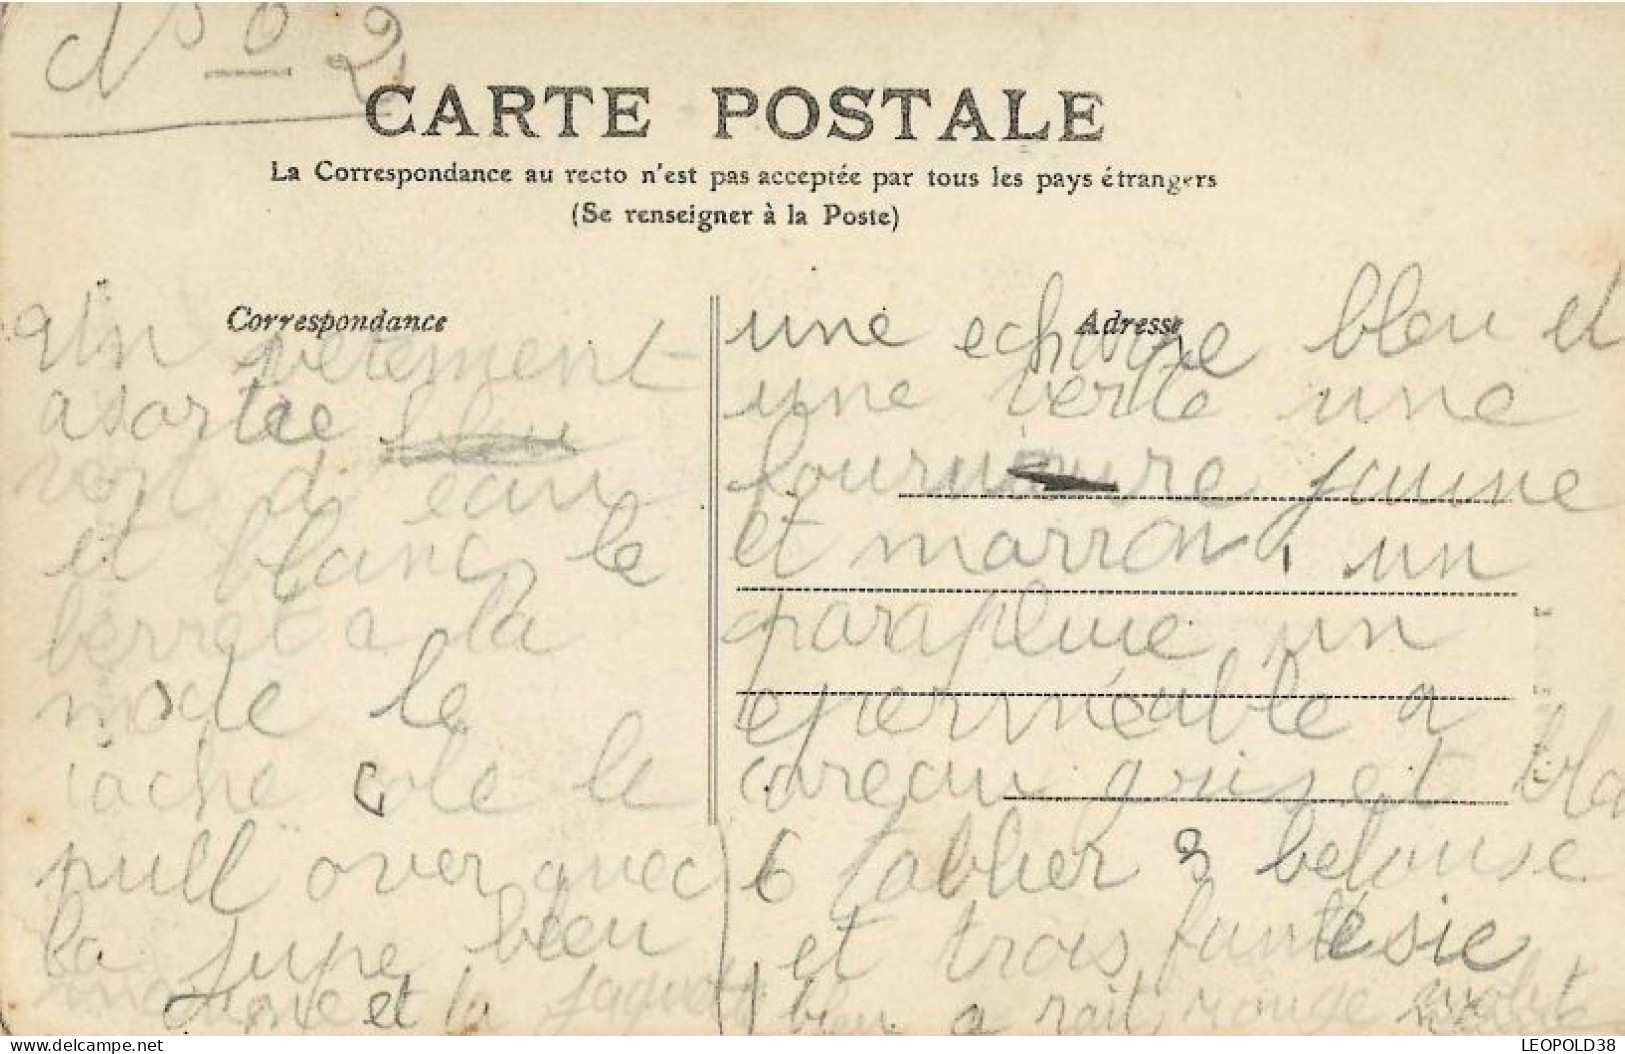 No 2
CARTE POSTALE
La Correspondance au recto n'est pas acceptée par tous les pays étrangers
(Se renseigner à la Poste)
Correspondance
Un vetement
asortie bleu
vert d'eau
et blanc, le
berret a la
mode le
cache cole le
pull over avec
la jupe bleu
marine et la jaquette
Adresse
une echarpe bleu et
une verte une
fourniture jaune
et marron, un
parapluie un
eperméable a
careau gris et bla
6 tablier 3 belouse
et trois fantésie
bleu a rait rouge
LEOPOLD38